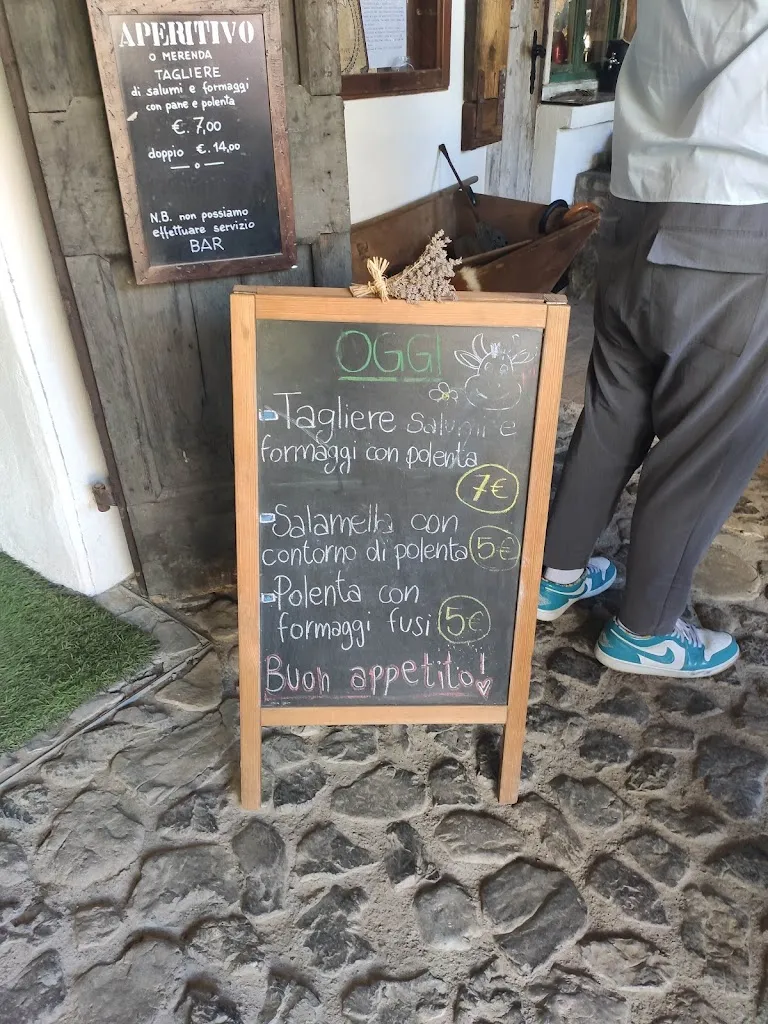 APERITIVO
O MERENDA
TAGLIERE
di salumi e formaggi
con pane e polenta
€. 7,00
doppio €. 14,00
N.B. non possiamo
effettuare servizio
BAR
OGGI
Tagliere salumi e
formaggi con polenta
7€
Salamella con
contorno di polenta 5€
Polenta con
formaggi fusi 5€
Buon appetito!